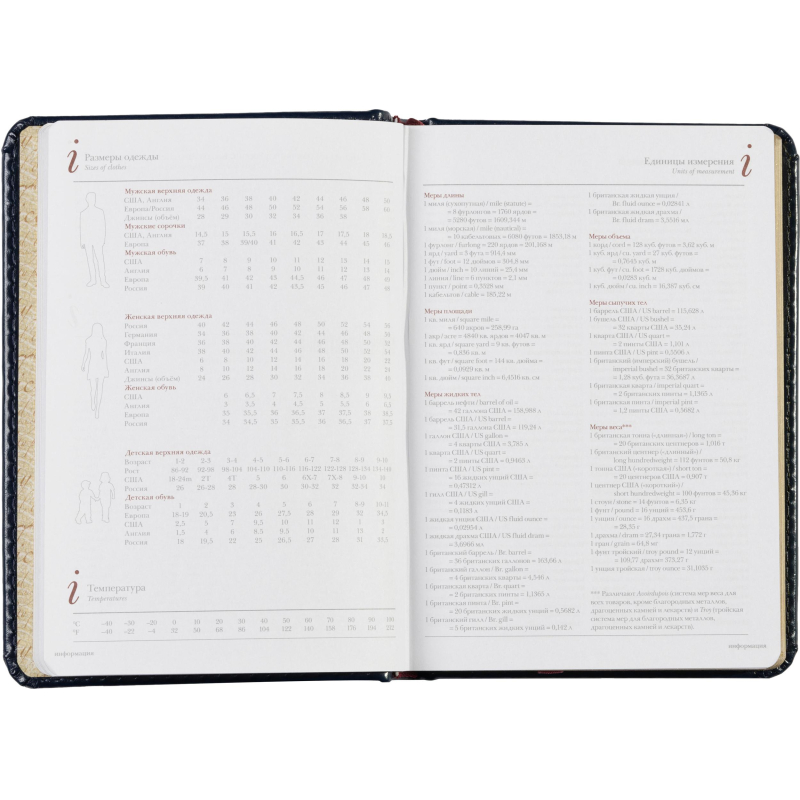 i Размеры одежды
Sizes of clothes
Мужская верхняя одежда
США, Англия 34 36 38 40 42 44 46 48 50
Европа/Россия 44 46 48 50 52 54 56 58 60
Джинсы (объём) 28 29 30 32 34 36 38
Мужские сорочки
США, Англия 14,5 15 15,5 16 16,5 17 17,5 18 18,5
Европа 37 38 39/40 41 42 43 44 45 46
Мужская обувь
США 7 8 9 10 11 12 13 14 15
Англия 6 7 8 9 10 11 12 13 14
Европа 39,5 41 42 43 44,5 46 47 48
Россия 39 40 41 42 43,5 45 46 47 48
Женская верхняя одежда
Россия 40 42 44 46 48 50 52 54 56
Германия 34 36 38 40 42 44 46 48 50
Франция 36 38 40 42 44 46 48 50 52
Италия 38 40 42 44 46 48 50 52 54
США 6 8 10 12 14 16 18 20 22
Англия 8 10 12 14 16 18 20 22 24
Джинсы (объём) 24 26 28 30 32 34 36 38 40
Женская обувь
США 6 6,5 7 7,5 8 8,5 9 9,5
Англия 3 3,5 4 4,5 5 5,5 6 6,5
Европа 35 35,5 36 36,5 37 37,5 38 38,5
Россия 34 34,5 35 35,5 36 36,5 37 37,5
Детская верхняя одежда
Возраст 1-2 2-3 3-4 4-5 5-6 6-7 7-8 8-9 9-10
Рост 86-92 92-98 98-104 104-110 110-116 116-122 122-128 128-134 134-140
США 18-24m 2T 4T 5 6 6X-7 7X-8 9-10 10
Россия 26 26-28 28 28-30 30 30-32 32 32-34 34
Детская обувь
Возраст 1 2 3 4 5 6 7 8-9 10-11
Европа 18-19 20,5 22 24,5 26,5 28 29 32 34,5
США 2,5 5 7 8,5 10 11 12 1 3
Англия 1,5 4 6 8 8,5 10 11 13
Россия 18 19,5 22 25 26,5 27 28 31
i Температура
Temperatures
°C –40 –30 –20 0 10 20 30 40 50 60 70 80 90 100
°F –40 –22 –4 32 50 68 86 104 122 140 158 176 194 212
информация
Единицы измерения i
Units of measurement
Меры длины
1 миля (сухопутная) / mile (statute) =
= 8 фурлонгов = 1760 ярдов =
= 5280 футов = 1609,344 м
1 миля (морская) / mile (nautical) =
= 10 кабельтовых = 6080 футов = 1853,18 м
1 фурлонг / furlong = 220 ярдов = 201,168 м
1 ярд / yard = 3 фута = 914,4 мм
1 фут / foot = 12 дюймов = 304,8 мм
1 дюйм / inch = 10 линий = 25,4 мм
1 линия / line = 6 пунктов = 2,1 мм
1 пункт / point = 0,3528 мм
1 кабельтов / cable = 185,22 м
Меры площади
1 кв. миля / square mile =
= 640 акров = 258,99 га
1 акр / acre = 4840 кв. ярдов = 4047 кв. м
1 кв. ярд / square yard = 9 кв. футов =
= 0,836 кв. м
1 кв. фут / square foot = 144 кв. дюйма =
= 0,0929 кв. м
1 кв. дюйм / square inch = 6,4516 кв. см
Меры жидких тел
1 баррель нефти / barrel of oil =
= 42 галлона США = 158,988 л
1 баррель США / US barrel =
= 31,5 галлона США = 119,24 л
1 галлон США / US gallon =
= 4 кварты США = 3,785 л
1 кварта США / US quart =
= 2 пинты США = 0,9463 л
1 пинта США / US pint =
= 16 жидких унций США =
= 0,47312 л
1 гилл США / US gill =
= 4 жидких унций США =
= 0,1183 л
1 жидкая унция США / US fluid ounce =
= 0,02954 л
1 жидкая драхма США / US fluid dram =
= 3,6966 мл
1 британский баррель / Br. barrel =
= 36 британских галлонов = 163,66 л
1 британский галлон / Br. gallon =
= 4 британских кварты = 4,546 л
1 британская кварта / Br. quart =
= 2 британских пинты = 1,1365 л
1 британская пинта / Br. pint =
= 20 британских жидких унций = 0,5682 л
1 британский гилл / Br. gill =
= 5 британских жидких унций = 0,142 л
1 британская жидкая унция /
Br. fluid ounce = 0,02841 л
1 британская жидкая драхма /
Br. fluid dram = 3,5516 мл
Меры объема
1 корд / cord = 128 куб. футов = 3,62 куб. м
1 куб. ярд / cu. yard = 27 куб. футов =
= 0,7645 куб. м
1 куб. фут / cu. foot = 1728 куб. дюймов =
= 0,0283 куб. м
1 куб. дюйм / cu. inch = 16,387 куб. см
Меры сыпучих тел
1 баррель США / US barrel = 115,628 л
1 бушель США / US bushel =
= 32 кварты США = 35,24 л
1 кварта США / US quart =
= 2 пинты США = 1,101 л
1 пинта США / US pint = 0,5506 л
1 британский (имперский) бушель /
imperial bushel = 32 британских кварты =
= 1,28 куб. фута = 36,3687 л
1 британская кварта / imperial quart =
= 2 британских пинты = 1,1365 л
1 британская пинта / imperial pint =
= 1,2 пинты США = 0,5682 л
Меры веса***
1 британская тонна («длинная») / long ton =
= 20 британских центнеров = 1,016 т
1 британский центнер («длинный») /
long hundredweight = 112 фунтов = 50,8 кг
1 тонна США («короткая») / short ton =
= 20 центнеров США = 0,907 т
1 центнер США («короткий») /
short hundredweight = 100 фунтов = 45,36 кг
1 стоун / stone = 14 фунтов = 6,35 кг
1 фунт / pound = 16 унций = 453,6 г
1 унция / ounce = 16 драхм = 437,5 гран =
= 28,35 г
1 драхма / dram = 27,34 грана = 1,772 г
1 гран / grain = 64,8 мг
1 фунт тройский / troy pound = 12 унций =
= 373,27 г
1 унция тройская / troy ounce = 31,1035 г
*** Различают Avoirdupois (систему мер веса для
всех товаров, кроме благородных металлов,
драгоценных камней и лекарств) и Troy (тройская
система мер для благородных металлов,
драгоценных камней и лекарств).
информация